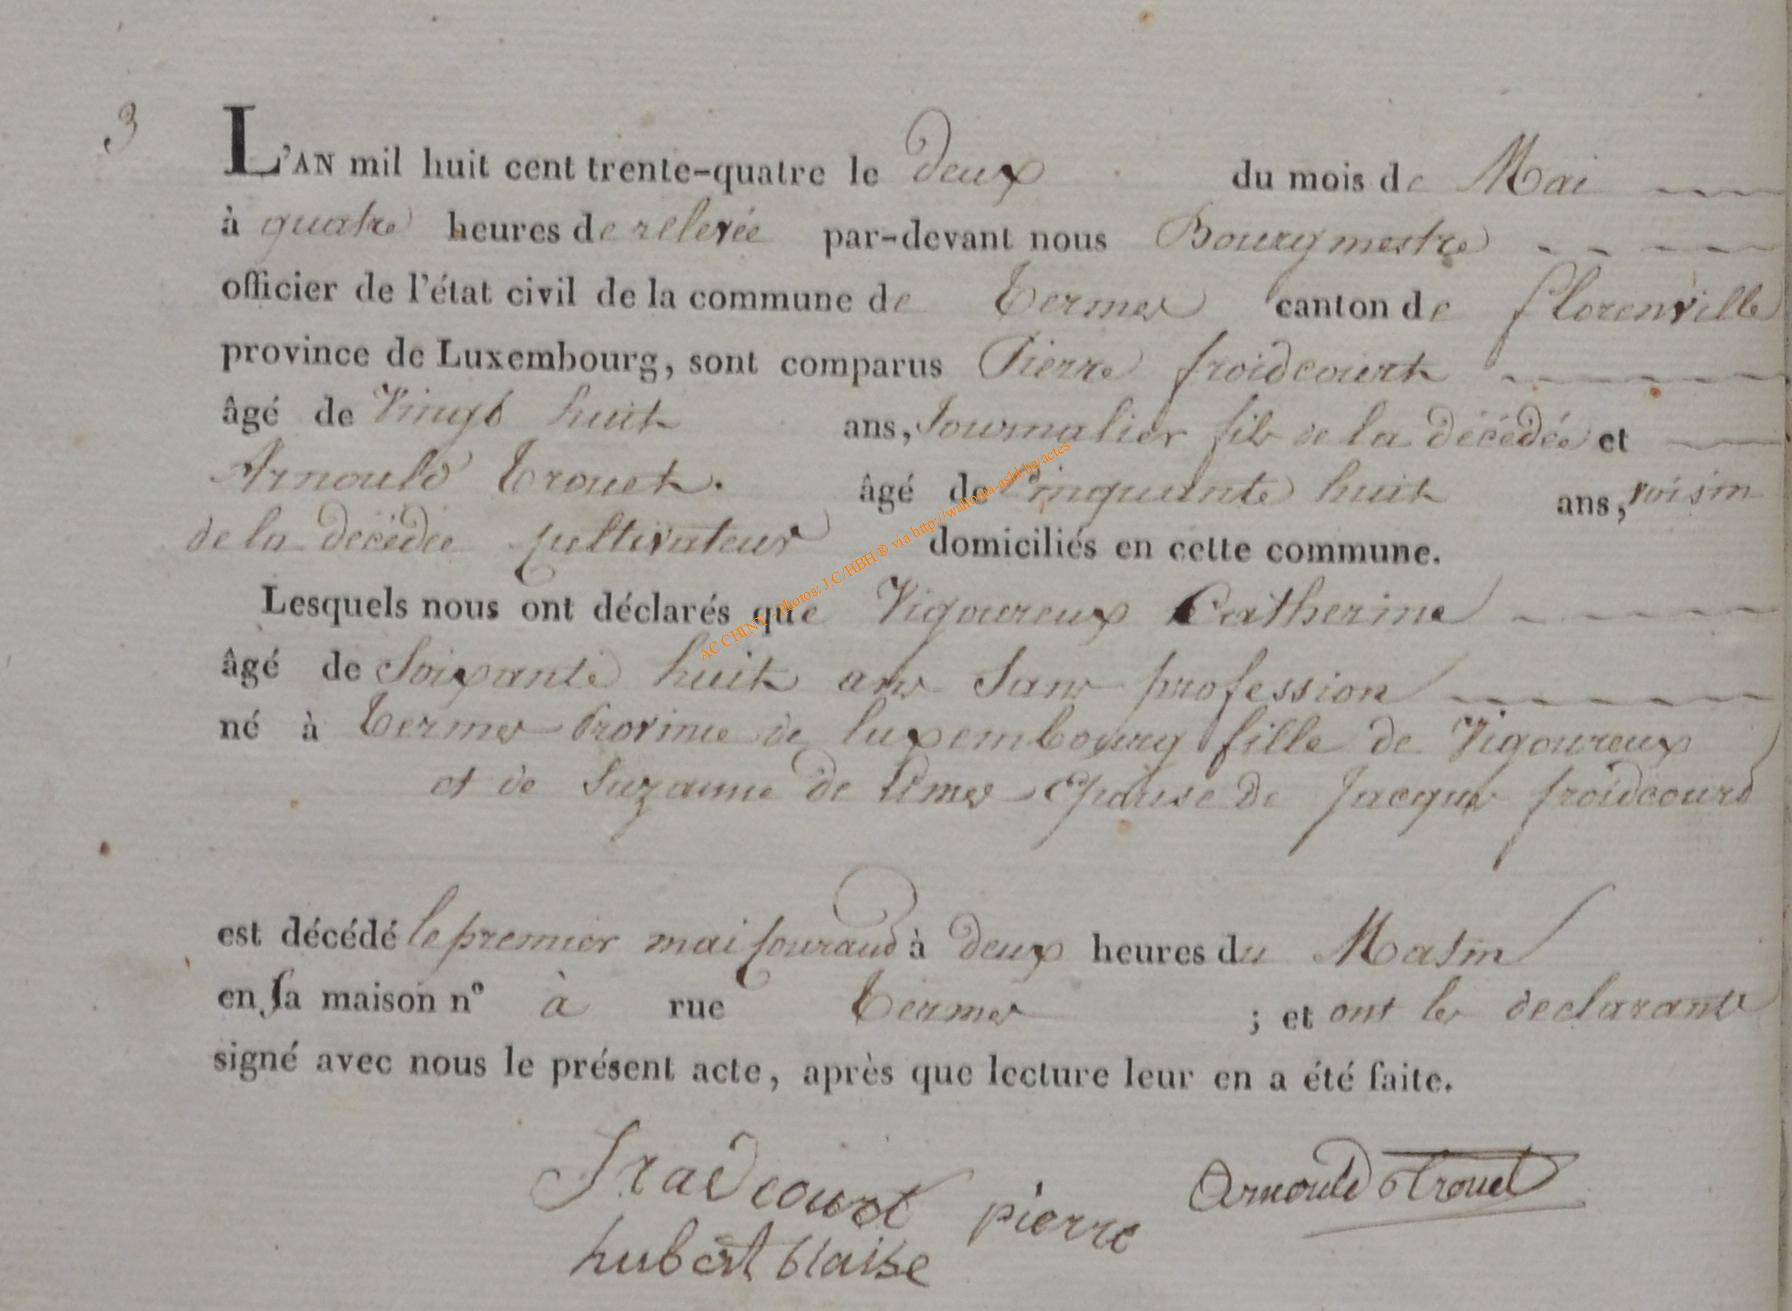 3
L'AN mil huit cent trente-quatre le deux du mois de Mai
à quatre heures de relevée par-devant nous Bourgmestre
officier de l'état civil de la commune de Termes canton de florenville
province de Luxembourg, sont comparus Pierre froidcourt
âgé de Vingt huit ans, Journalier fils de la décédée et
Arnould Trouet. âgé de Cinquante huit ans, voisin
de la décédée cultivateur domiciliés en cette commune.
Lesquels nous ont déclarés que Vigoureux Catherine
âgé de Soixante huit ans Sans profession
né à Termes Province de luxembourg fille de Vigoureux
et de Suzanne de Epouse de Jacques froidcourt
est décédé le premier mai courant à deux heures du Matin
en sa maison n° à rue Termes ; et ont les declarants
signé avec nous le présent acte, après que lecture leur en a été faite.
fradcourt pierre Arnould trouet
hubert blaise
AC CHINY photos: J.C/HBH ® via http://wallonia-asbl.be/actes